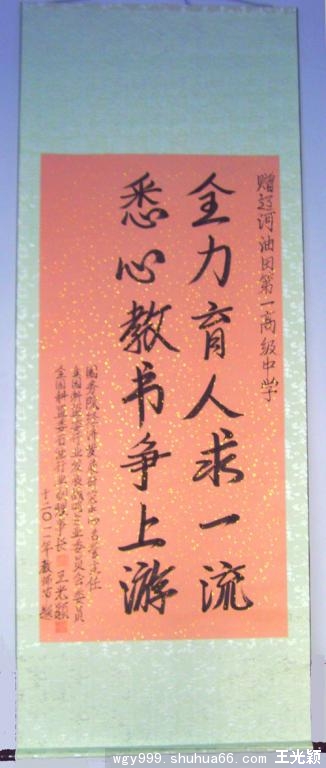 赠辽河油田第一高级中学
全力育人求一流
悉心教书争上游
国务院经济发展研究中心名誉主任
委员会委员
王光颖
于二〇一一年教师节题
wgy999.shuhua66.com 王光颖